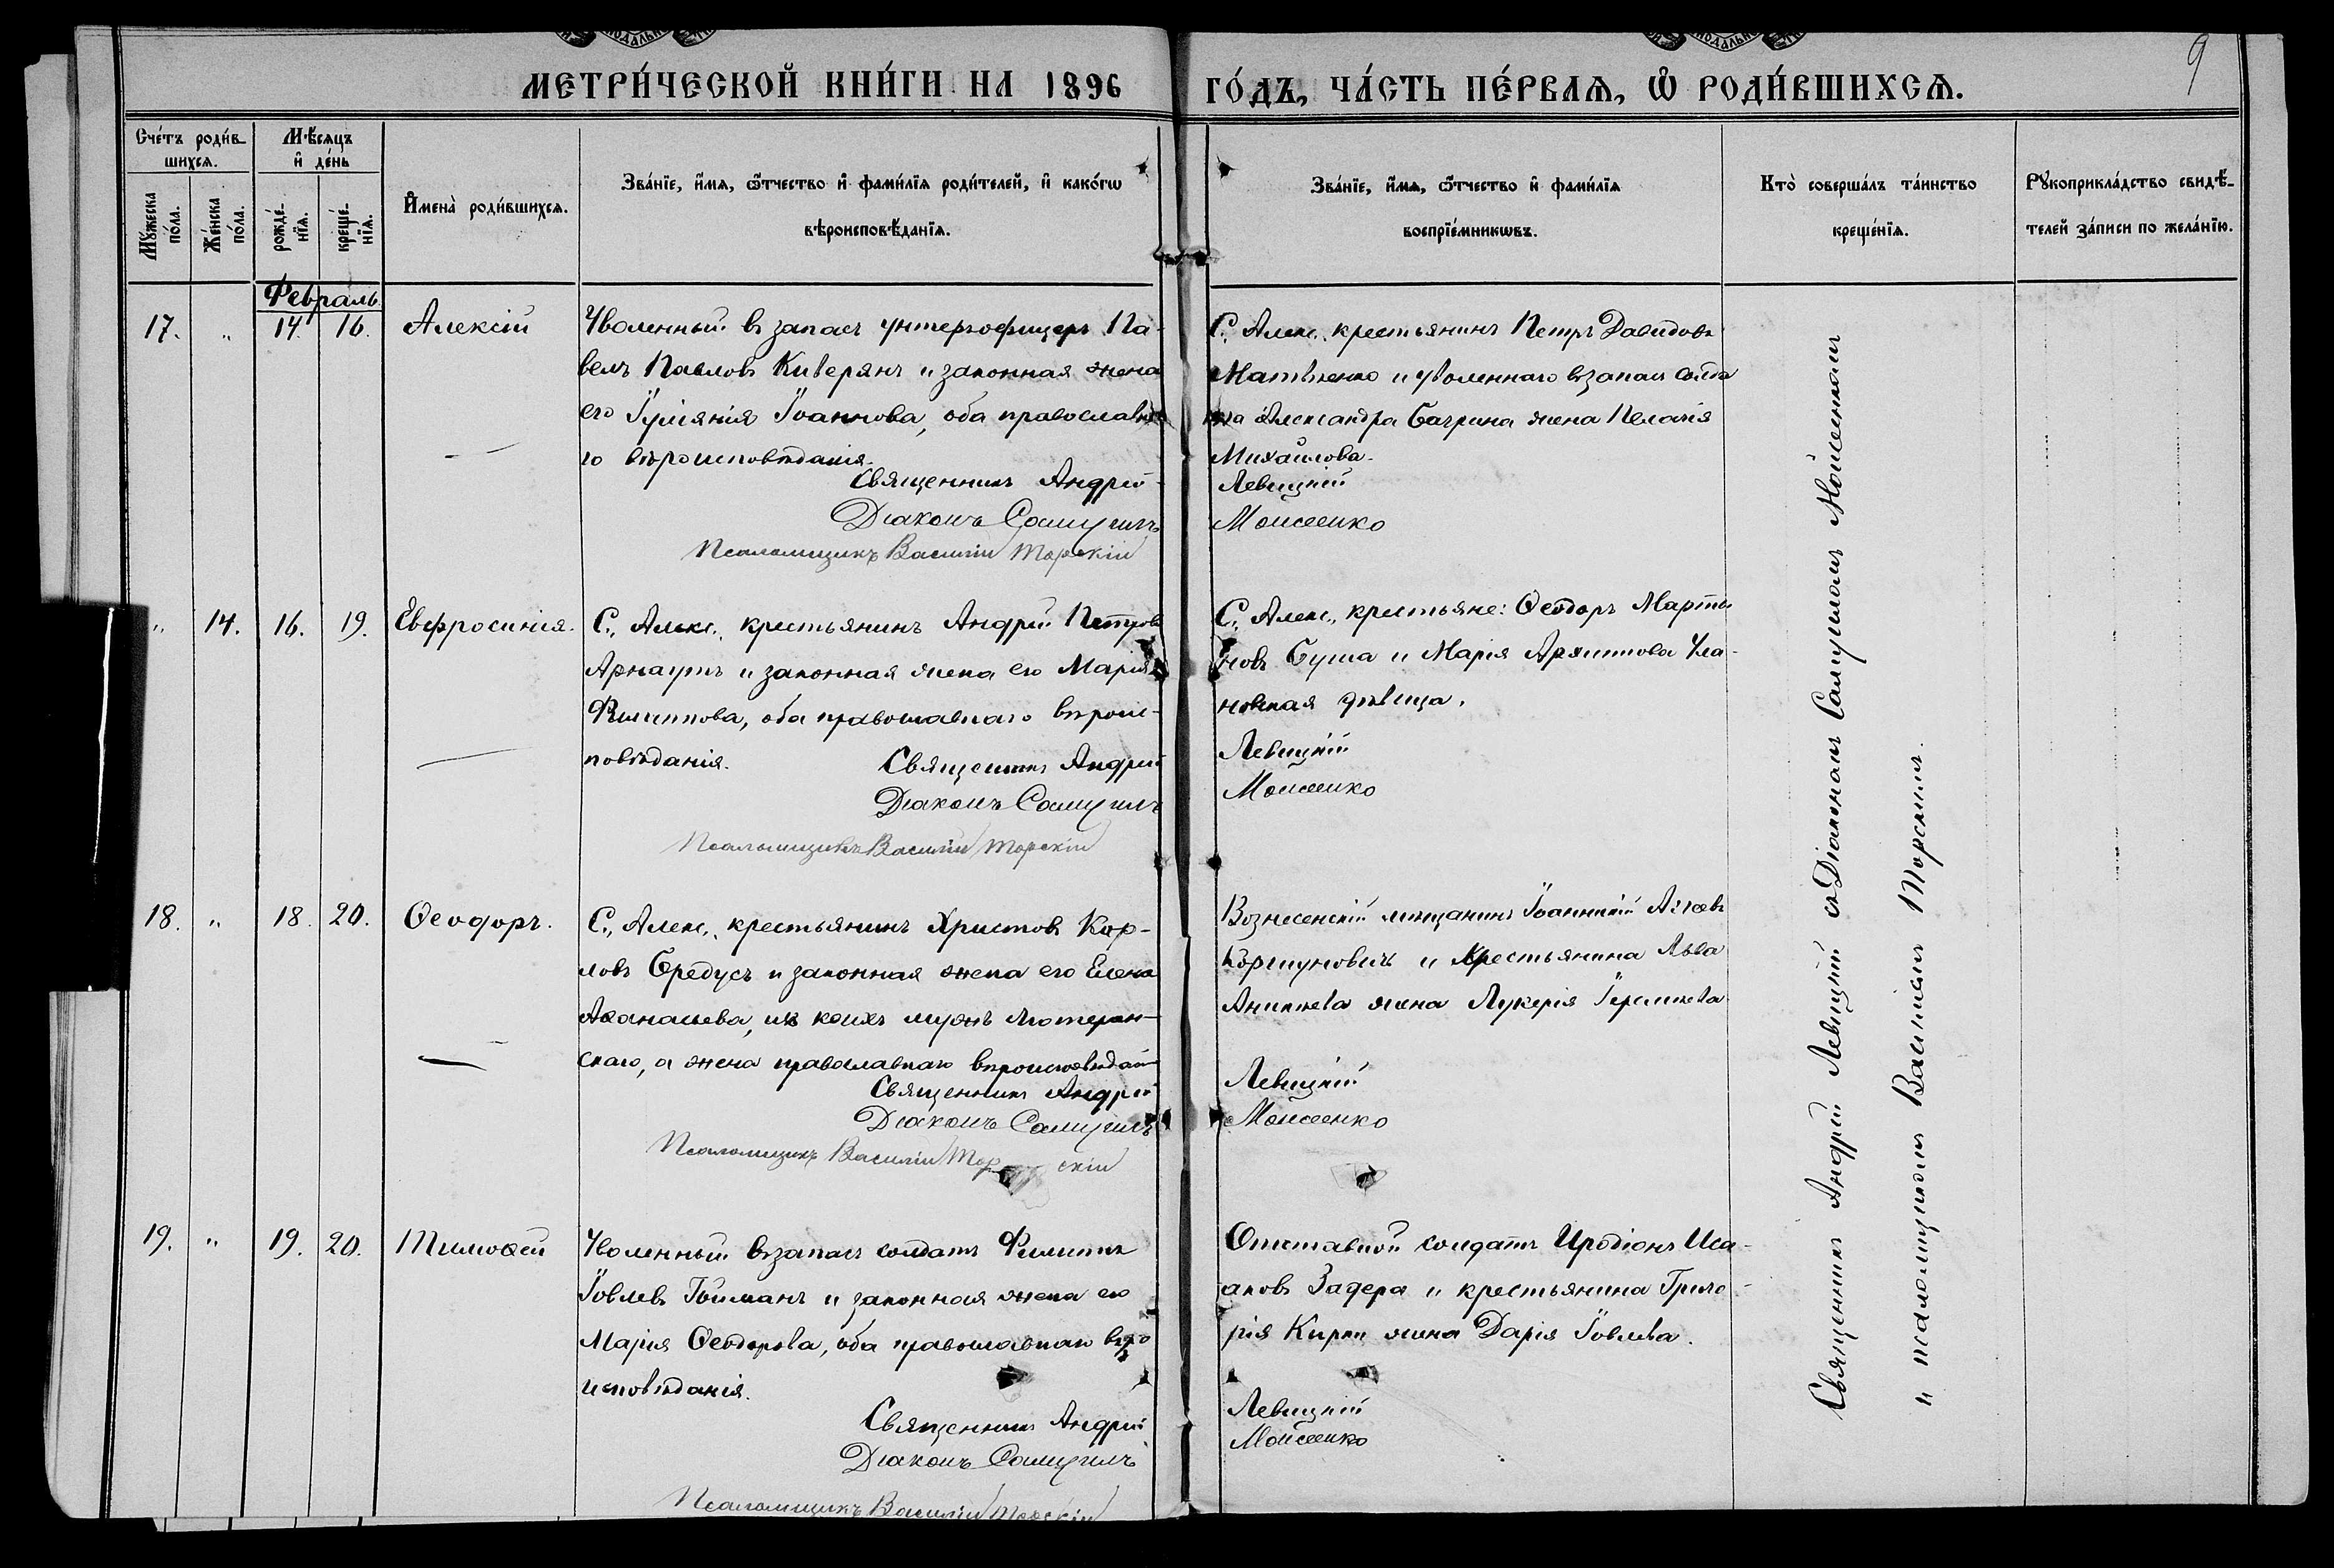 МЕТРИ́ЧЕСКОЙ КНИ́ГИ НА 1896 ГО́ДЪ, ЧА́СТЬ ПЕ́РВАѦ, Ѡ҆ РОДИ́ВШИХСѦ.
9
Сче́тъ роди́в-
шихсѧ.
Мѣ́сѧцъ
и҆ де́нь
Мꙋ́жеска
по́ла.
Же́нска
по́ла.
рожде́-
нїѧ.
креще́-
нїѧ.
И҆мена̀ роди́вшихсѧ.
Зва́нїе, и҆́мѧ, ѻ҆́тчество и҆ фами́лїѧ роди́телей, и҆ како́гѡ
вѣроисповѣ́данїѧ.
Зва́нїе, и҆́мѧ, ѻ҆́тчество и҆ фами́лїѧ
воспрїе́мникѡвъ.
Кто̀ соверша́лъ та́инство
креще́нїѧ.
Рꙋкоприкла́дство свидѣ́-
телей за́писи по жела́нїю.
Февраль
17. " 14. 16. Алексій
Уволенный въ запасъ унтерофицеръ Па-
велъ Павловъ Киверянъ и законная жена
его Іуліянія Іоаннова, оба православна-
го вѣроисповѣданія.
Священникъ Андрей
Діаконъ Самуилъ
Псаломщикъ Василій Торскій
С. Алекс. крестьянинъ Петръ Давидовъ
Матвѣенко и уволеннаго въ запасъ солда
та Александра Баурина жена Пелагія
Михайлова.
Левицкій
Моисеенко
" 14. 16. 19. Евфросинія.
С. Алекс. крестьянинъ Андрей Петровъ
Арнаутъ и законная жена его Марія
Филиппова, оба православнаго вѣроис-
повѣданія. Священникъ Андрей
Діаконъ Самуилъ
Псаломщикъ Василій Торскій
С. Алекс. крестьяне: Ѳеодоръ Марты-
новъ Буша и Марія Архиппова Ула-
новская дѣвица.
Левицкій
Моисеенко
18. " 18. 20. Ѳеодоръ.
С. Алекс. крестьянинъ Христовъ Кар-
ловъ Бредусъ и законная жена его Елена
Аѳанасьева, изъ коихъ мужъ лютеран-
скаго, а жена православнаго вѣроисповѣдан
Священникъ Андрей
Діаконъ Самуилъ
Псаломщикъ Василій Торскій
Вознесенскій мѣщанинъ Іоанникій
Коршуновичъ и крестьянина Льва
Аникіева жена Лукерія
Левицкій
Моисеенко
19. " 19. 20. Тимоѳей
Уволенный въ запасъ солдатъ Филиппъ
Іовлевъ Гойманъ и законная жена его
Марія Ѳеодорова, оба православнаго вѣро
исповѣданія.
Священникъ Андрей
Діаконъ Самуилъ
Псаломщикъ Василій Торскій
Отставной солдатъ Иродіонъ Иса-
аковъ Задера и крестьянина Григо-
рія Кирки жена Дарія Іовлева.
Левицкій
Моисеенко
Священникъ Андрей Левицкій съ Діакономъ Самуиломъ Моисеенкомъ
и псаломщикомъ Василіемъ Торскимъ.